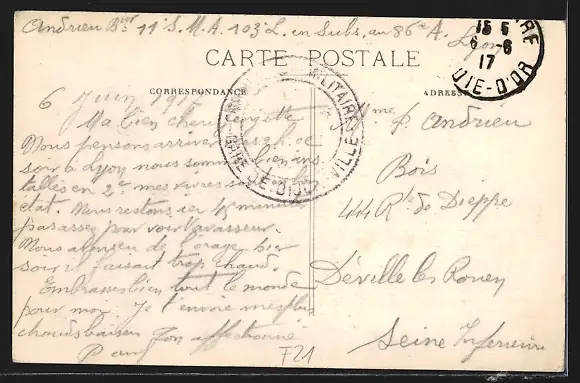 Andrieu Bier 11e S.M.A. 103e L. en Subs. au 86e A. Lyon
CARTE POSTALE
CORRESPONDANCE
ADRESSE
15 5
6 - 6
17
CÔTE-D'OR
MILITAIRE
GARE DE DIJON-VILLE
6 Juin 1917
Ma bien chère
Nous pensons arriver
soir à Lyon nous sommes bien ins
tallés en 2e mes vivres
état. Nous restons ici 45 minutes
pas assez pour voir Lavasseur.
Nous avons eu de l'orage hier
soir il faisait trop chaud.
Embrasses bien tout le monde
pour moi. Je t'envoie mes plus
chauds baisers Ton affectionné
Paul
Mme P. Andrieu
Bois
44 Rte de Dieppe
Déville les Rouen
Seine Inférieure
F21